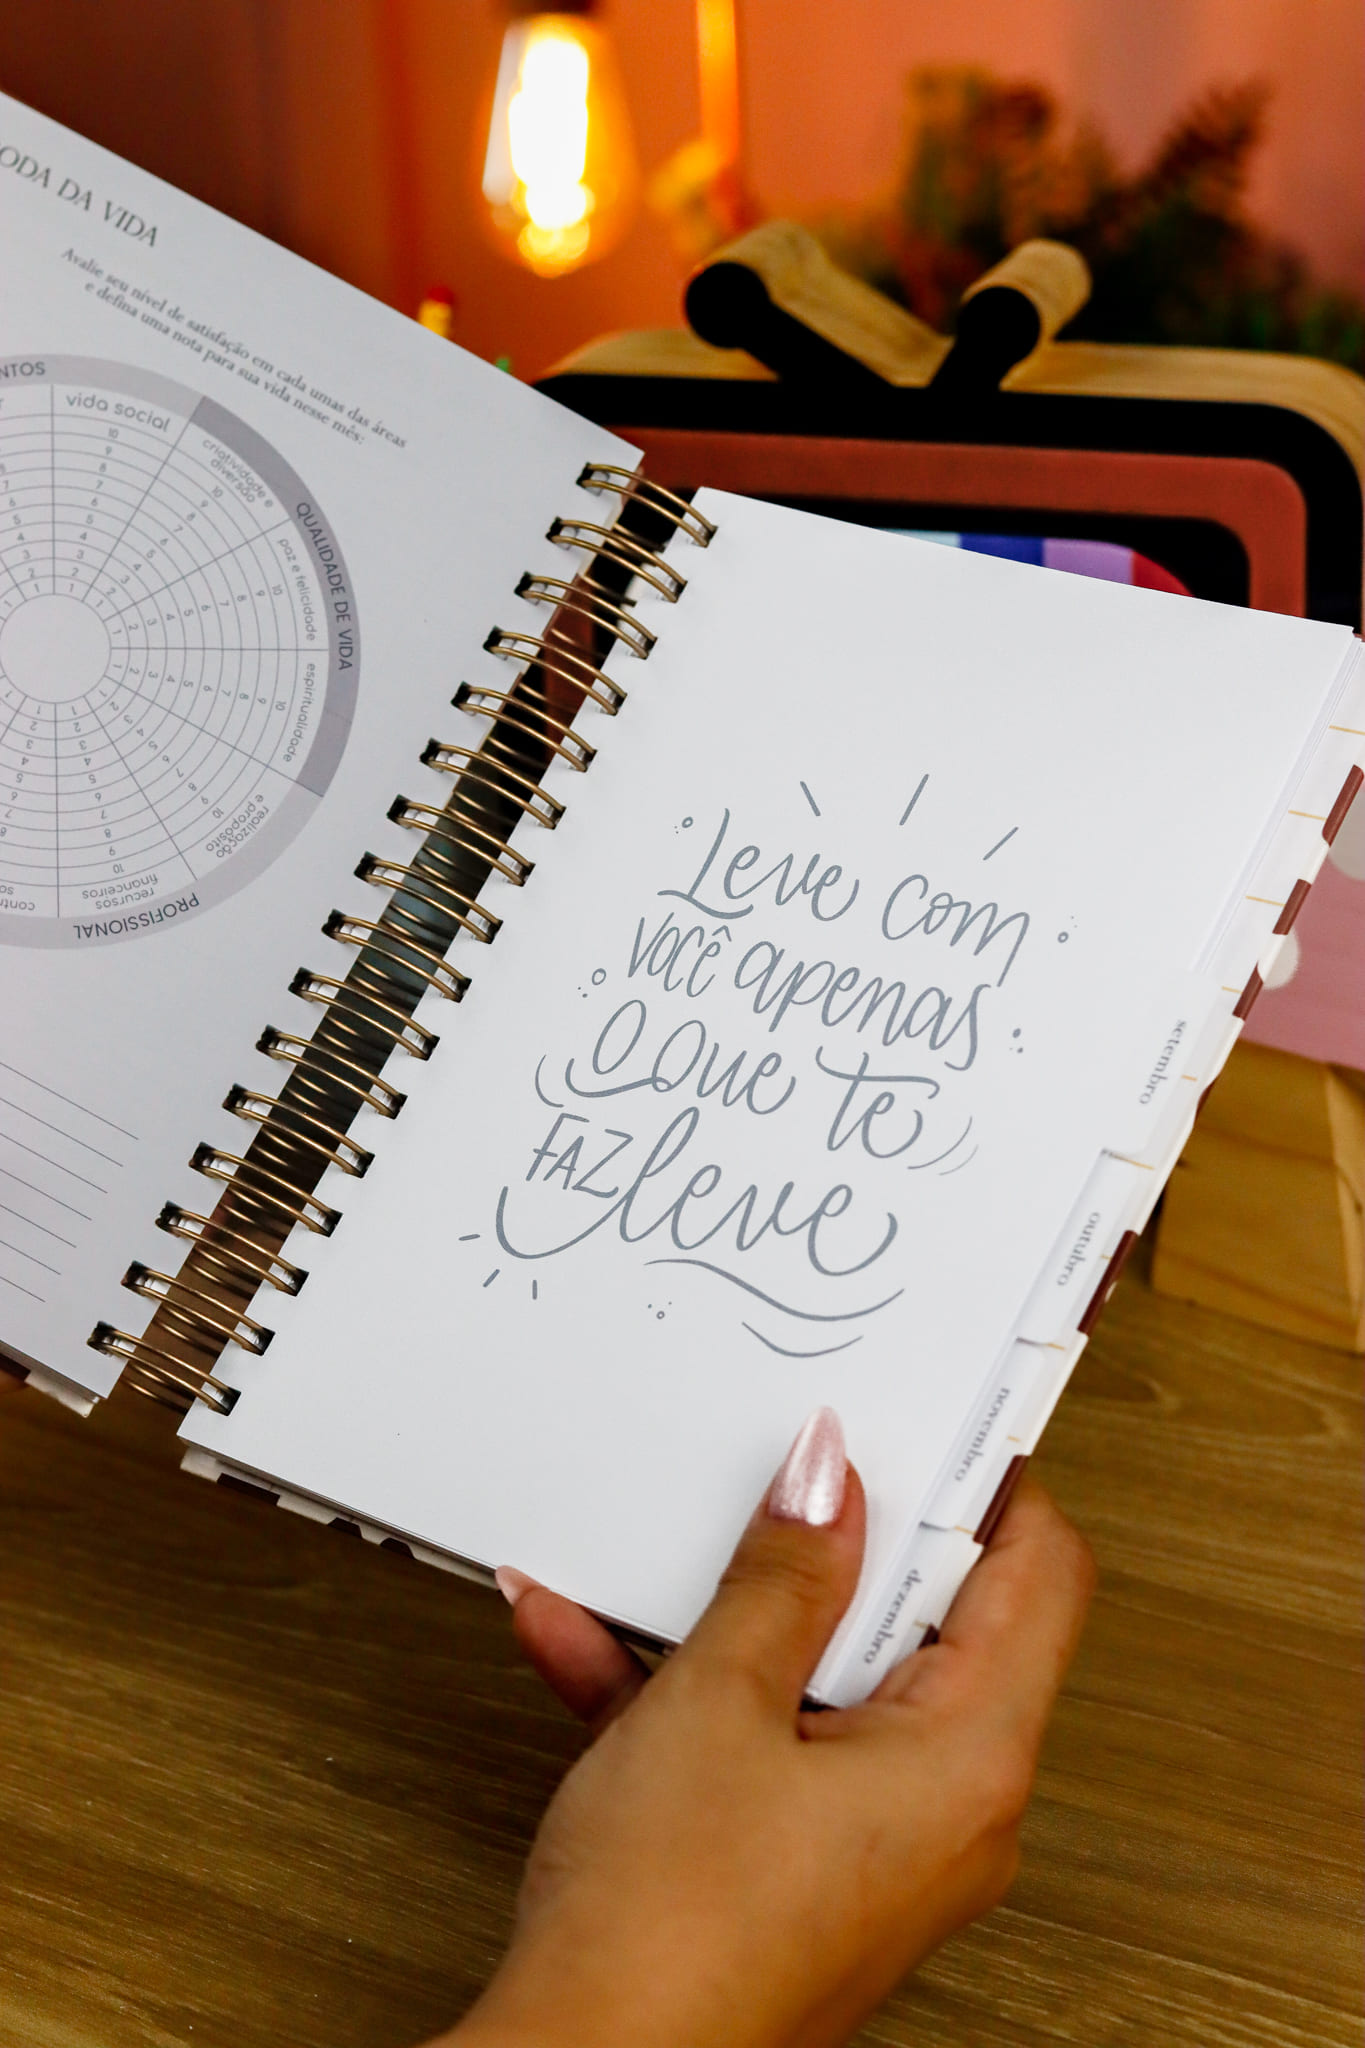 ODA DA VIDA
Avalie seu nível de satisfação em cada umas das áreas
e defina uma nota para sua vida nesse mês:
NTOS
vida social
criatividade e
diversão
QUALIDADE DE VIDA
paz e felicidade
espiritualidade
realização
e propósito
recursos
financeiros
PROFISSIONAL
10
9
8
7
6
5
4
3
2
1
Leve com
você apenas
o que te
FAZ leve
setembro
outubro
novembro
dezembro